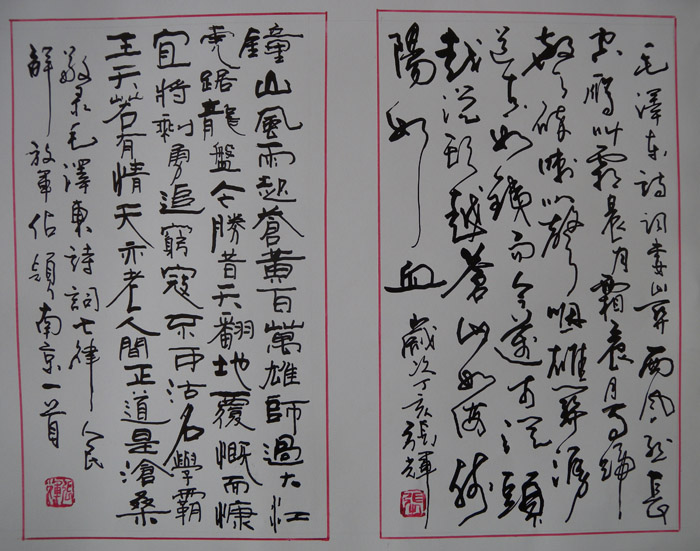 毛澤東詩詞婁山關 西風烈長
空鴈叫霜晨月霜晨月馬蹄
聲碎喇叭聲咽雄關漫
道真如鐵而今邁步從頭
越從頭越蒼山如海殘
陽如血
歲次丁亥張輝
張
鐘山風雨起蒼黃百萬雄師過大江
虎踞龍盤今勝昔天翻地覆慨而慷
宜將剩勇追窮寇不可沽名學霸
王天若有情天亦老人間正道是滄桑
敬录毛澤東詩詞七律人民
解放軍佔領南京一首